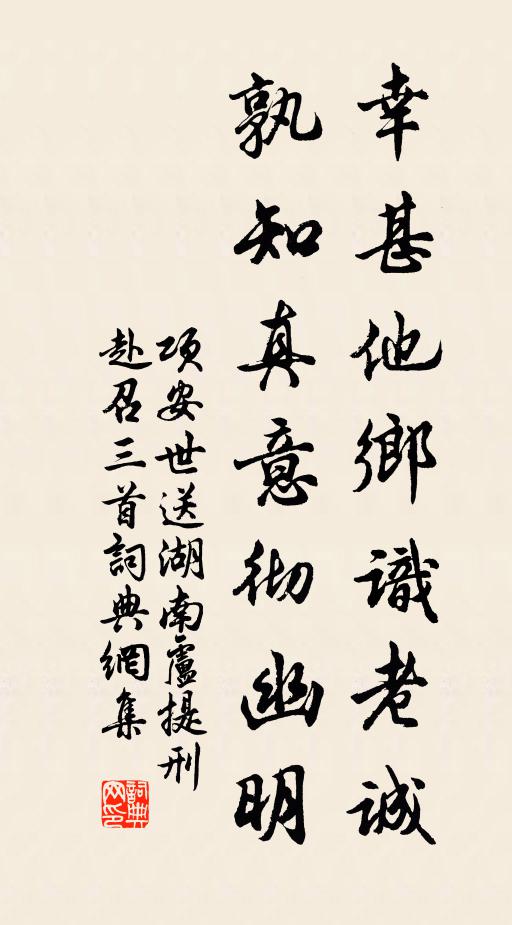 幸甚他鄉識老誠
孰知真意彻幽明
项安世送湖南盧提刑
赴召三首詞典網集
詞典网印